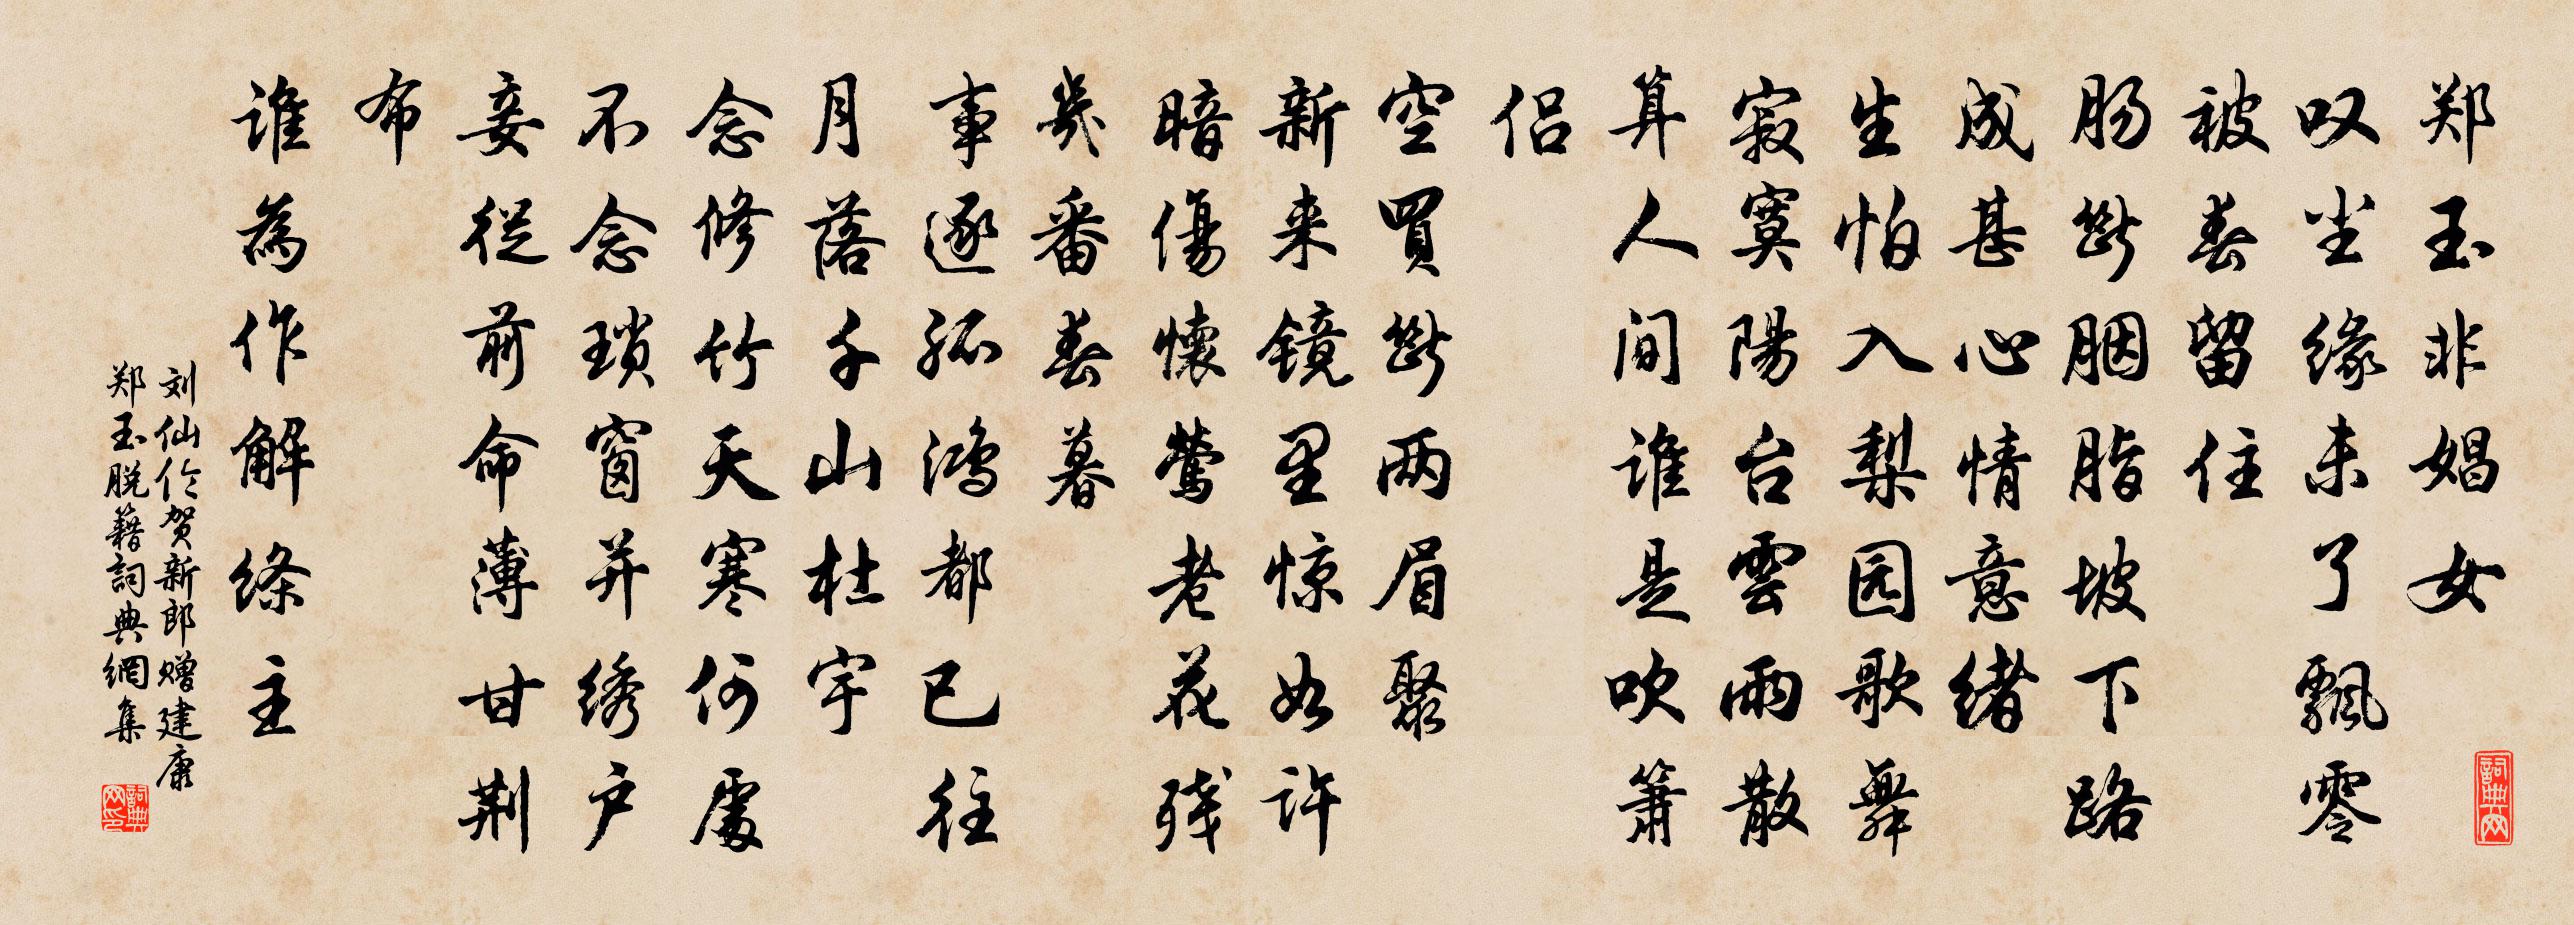 郑玉非娼女
叹尘缘未了飄零
被春留住
肠斷胭脂坡下路
成甚心情意緒
生怕入梨园歌舞
寂寞陽台雲雨散
算人间谁是吹箫
侣
空買斷两眉聚
新来镜里惊如许
暗傷懷鶯老花残
幾番春暮
事逐孤鸿都已往
月落千山杜宇
念修竹天寒何處
不念琐窗并绣户
妾從前命薄甘荆
布
谁為作解绦主
刘仙伦贺新郎赠建康
郑玉脱籍詞典網集
詞典网
詞典网印